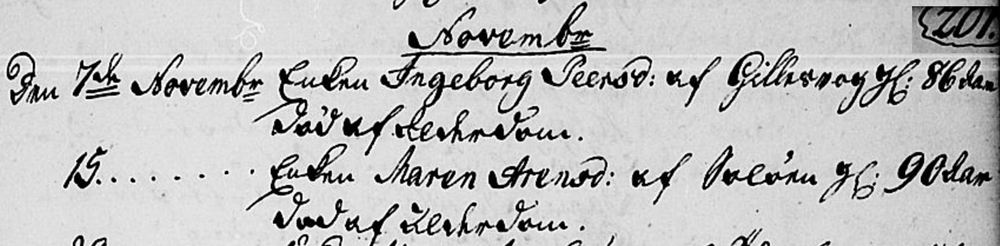 201.
Novembr
Den 7de Novembr Enken Ingeborg Peersd: af Gillesvog gl: 86 Aar
Död af Alderdom.
15......... Enken Maren Arensd: af Soløen gl: 90 Aar
Död af Alderdom.